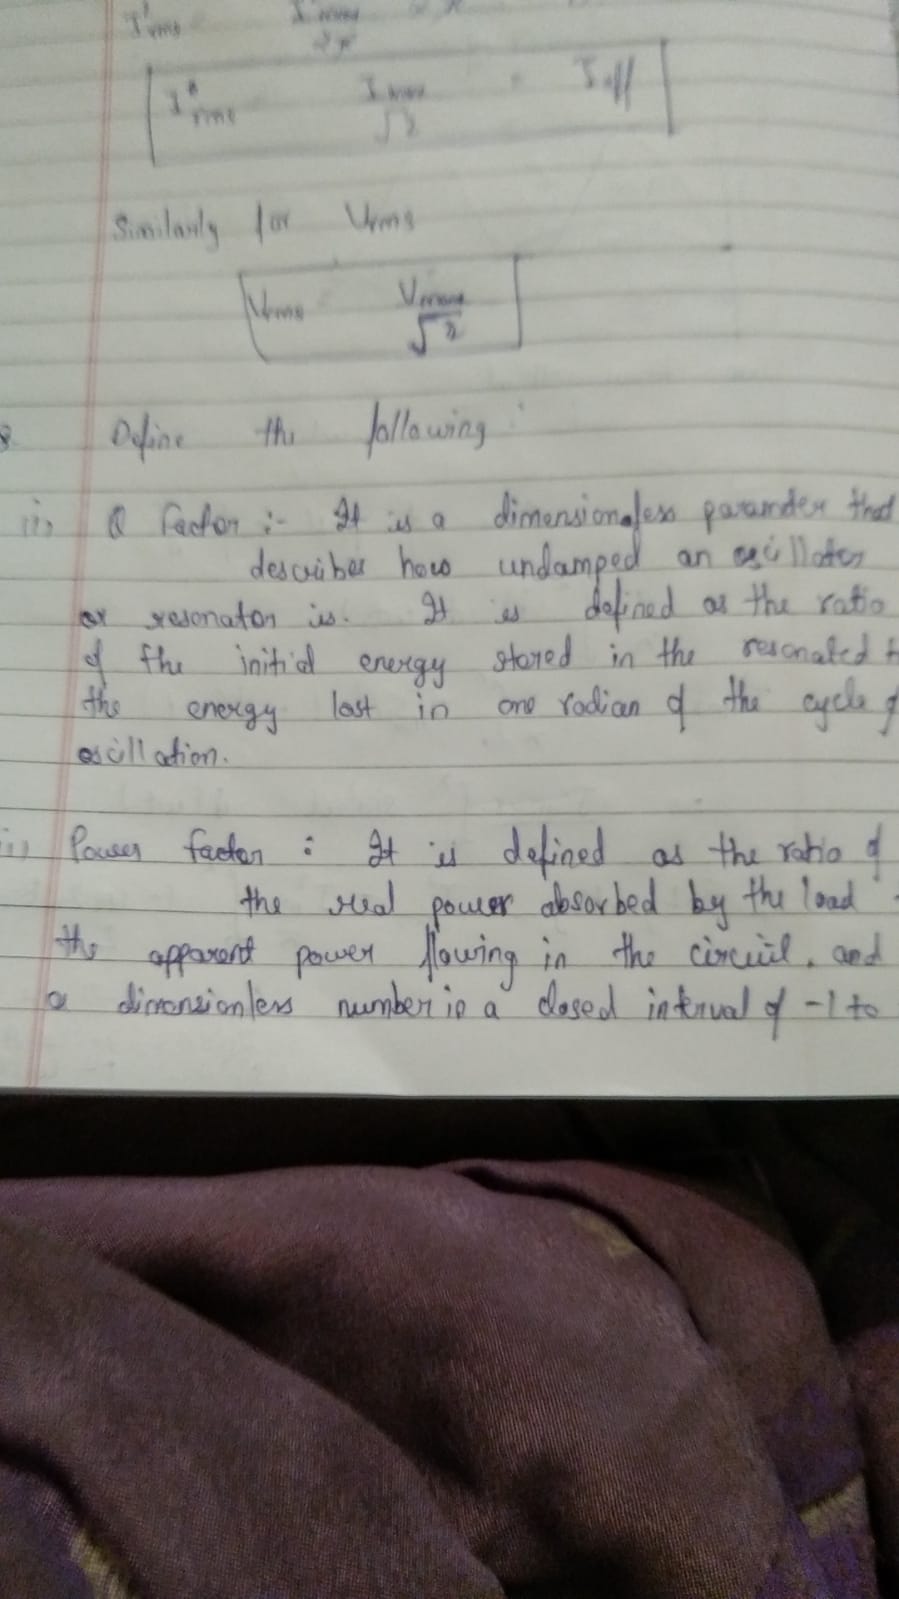 I rms I max
2π
I rms I max = I eff
√2
Similarly for Vrms
Vrms Vmax
√2
Define the following :
ii) Q factor :- It is a dimensionless paramder that
describes how undamped an oscillator
or resonator is. It is defined as the ratio
of the initial energy stored in the resonated t
the energy last in one radian of the cycle of
oscillation.
ii) Power factor : It is defined as the ratio of
the real power absorbed by the load
the apparent power flowing in the circuit. and
a dimensionless number in a closed interval of -1 to